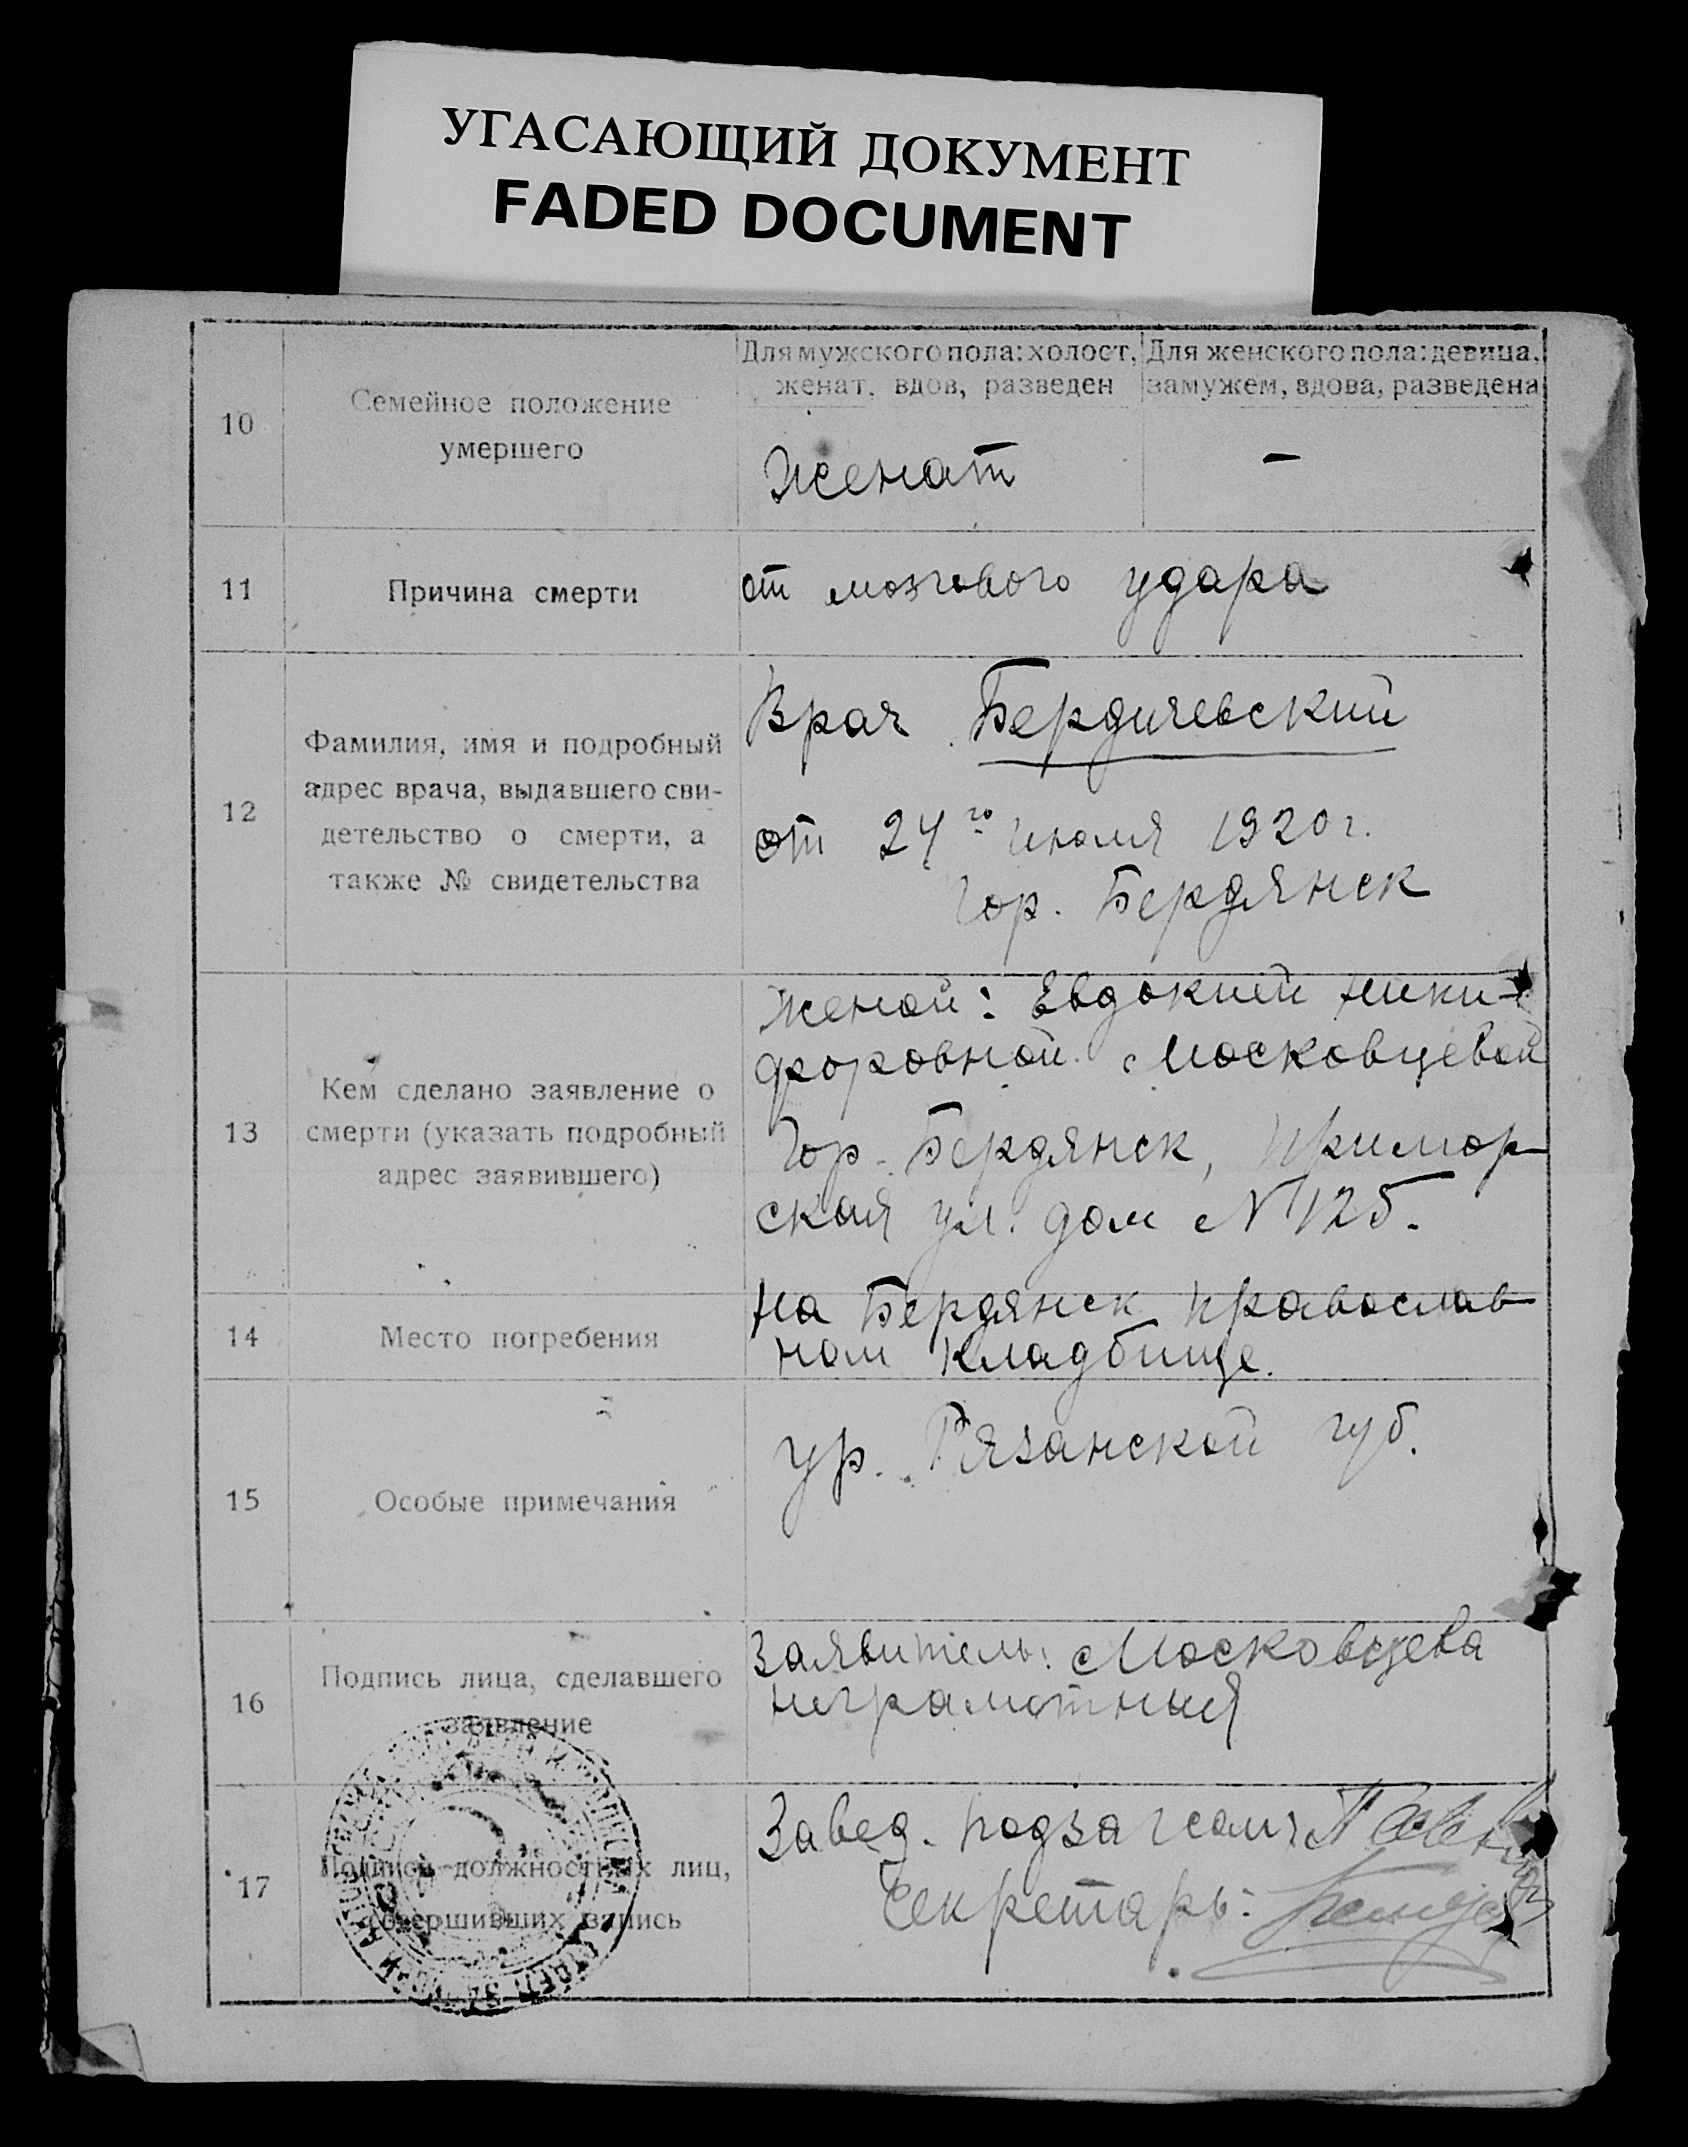 УГАСАЮЩИЙ ДОКУМЕНТ
FADED DOCUMENT
10
Семейное положение
умершего
Для мужского пола: холост,
женат, вдов, разведен
Для женского пола: девица,
замужем, вдова, разведена
Женат
—
11
Причина смерти
от мозгового удара
12
Фамилия, имя и подробный
адрес врача, выдавшего сви-
детельство о смерти, а
также № свидетельства
Врач Бердичевский
от 24го июля 1920 г.
Гор. Бердянск
13
Кем сделано заявление о
смерти (указать подробный
адрес заявившего)
Женой: Евдокией Ники-
форовной Московцевой
Гор. Бердянск, Примор-
ская ул. дом № 125.
14
Место погребения
На Бердянск православ-
ном кладбище.
15
Особые примечания
ур. Рязанской губ.
16
Подпись лица, сделавшего
заявление
Заявитель: Московцева
неграмотныя
17
Подписи должностных лиц,
совершивших запись
Завед. подзагсом
Секретарь: